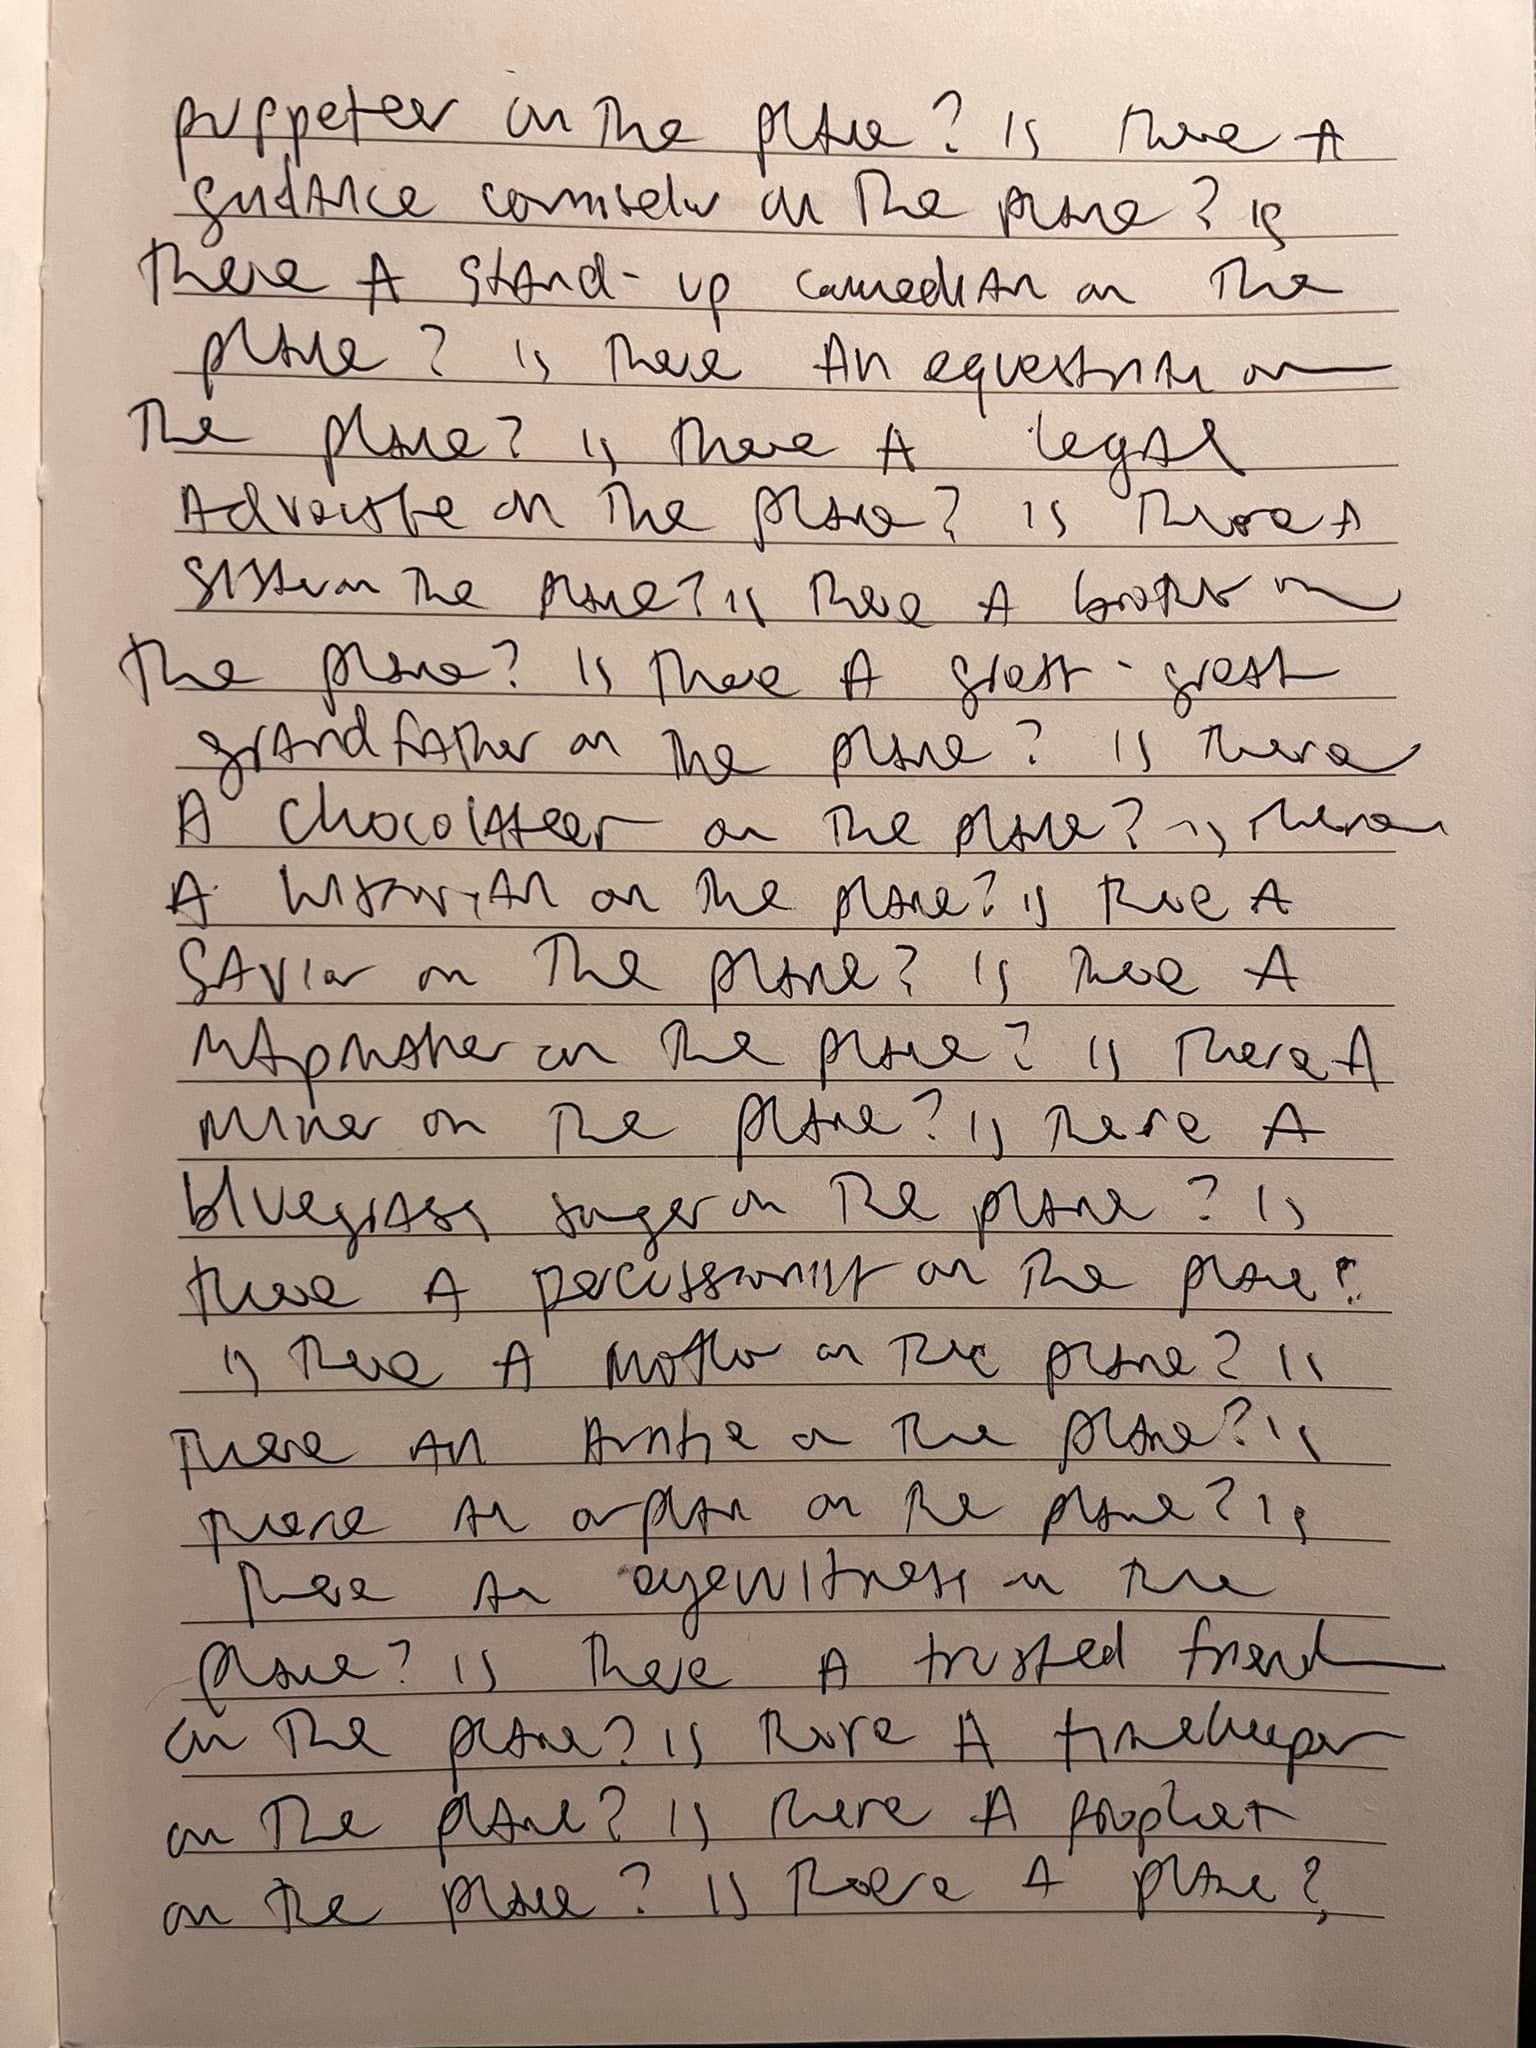 puppeteer on the plane? is there A
guidance counselor on the plane? is
there A stand-up comedian on the
plane? is there An equestrian on
the plane? is there A legal
Advocate on the plane? is there A
sister on the plane? is there A brother on
the plane? is there A great-great
grandfather on the plane? is there
A chocolateer on the plane? is there
A historian on the plane? is there A
savior on the plane? is there A
mapmaker on the plane? is there A
miner on the plane? is there A
bluegrass singer on the plane? is
there A percussionist on the plane?
is there A mother on the plane? is
there An Auntie on the plane? is
there An orphan on the plane? is
there An eyewitness on the
plane? is there A trusted friend
on the plane? is there A timekeeper
on the plane? is there A prophet
on the plane? is there A plane?